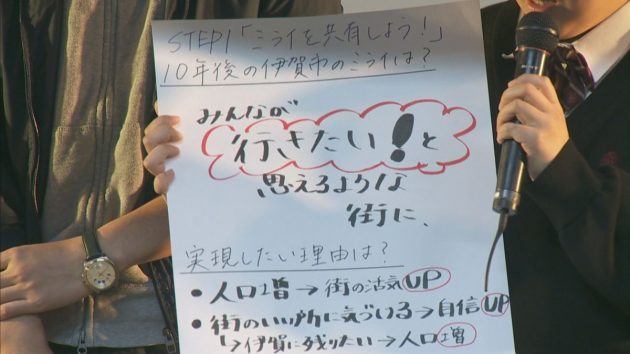 STEP1「ミライを共有しよう!」
10年後の伊賀市のミライは?
みんなが
行きたい!と
思えるような
街に、
実現したい理由は?
・人口増→街の活気UP
・街のいい所に気づいる→自信UP
↳伊賀に残りたい→人口増